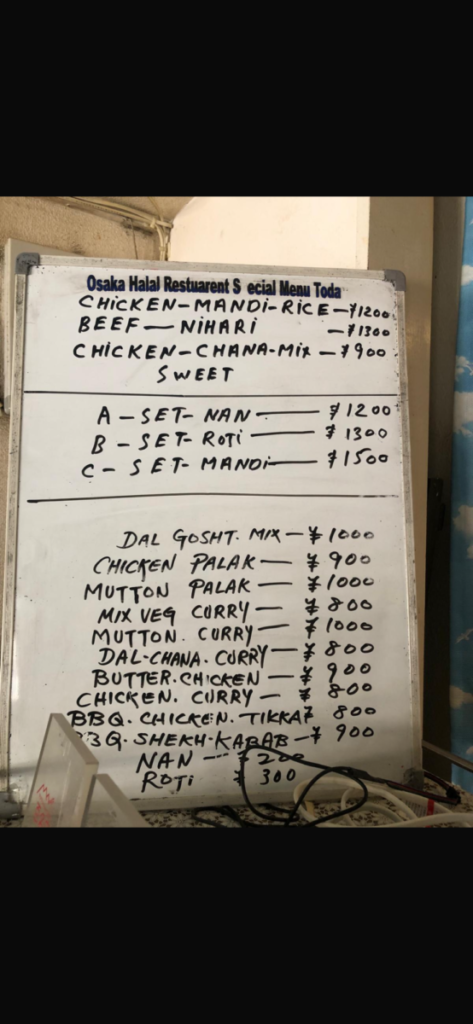 Osaka Halal Restuarent S ecial Menu Toda
CHICKEN-MANDI-RICE-¥1200
BEEF-NIHARI -¥1300
CHICKEN-CHANA-MIX-¥900
SWEET
A-SET-NAN-¥1200
B-SET-ROTI-¥1300
C-SET-MANDI-¥1500
DAL GOSHT. MIX-¥1000
CHICKEN PALAK-¥900
MUTTON PALAK-¥1000
MIX VEG CURRY-¥800
MUTTON. CURRY-¥1000
DAL-CHANA. CURRY-¥800
BUTTER. CHICKEN-¥900
CHICKEN. CURRY-¥800
BBQ. CHICKEN. TIKKA ¥ 800
BBQ. SHEKH-KABAB-¥ 900
NAN --- ¥ 200
ROTI ¥ 300